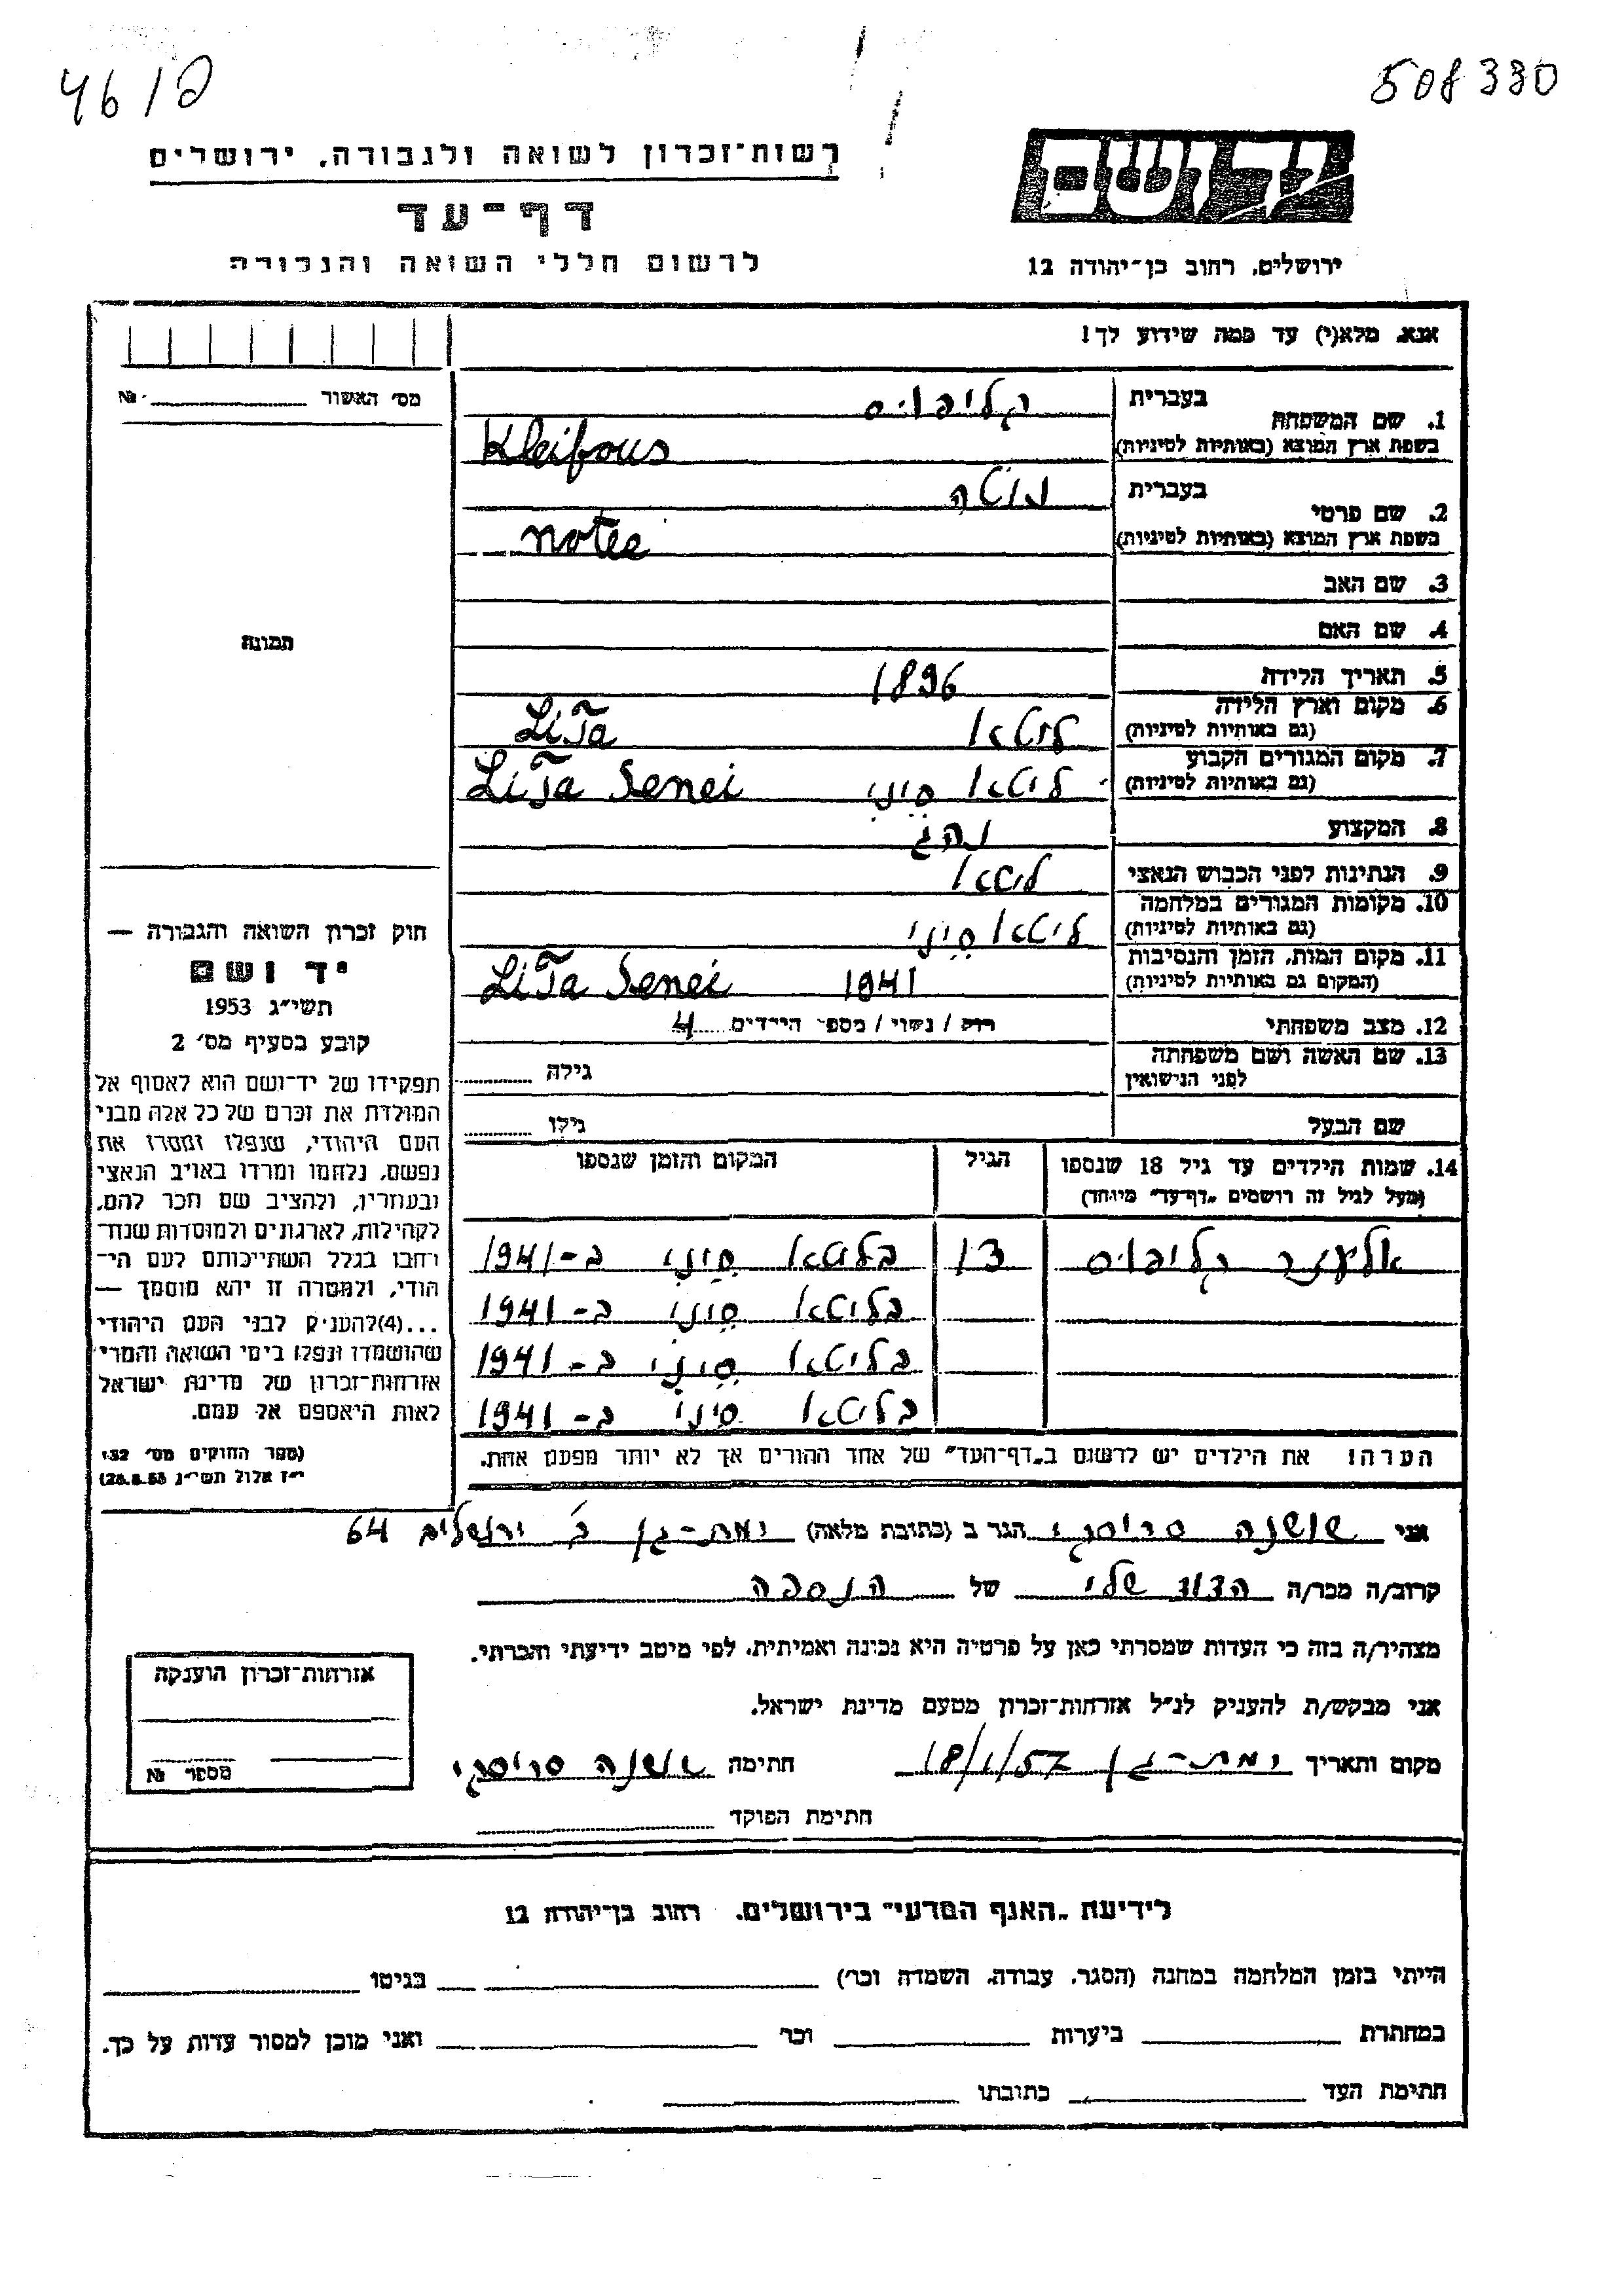 4612
508330
רשות־זכרון לשואה ולגבורה, ירושלים
יד ושם
דף־עד
לרשום חללי השואה והגבורה
ירושלים, רחוב בן־יהודה 12
אנא, מלא(י) עד כמה שידוע לך!
מס׳ האשור № 
1. שם המשפחה
בעברית קליפוס
בשפת ארץ המוצא (באותיות לטיניות) Kleifous
2. שם פרטי
בעברית נוטה
בשפת ארץ המוצא (באותיות לטיניות) notee
3. שם האב
4. שם האם
תמונה
5. תאריך הלידה 1896
6. מקום וארץ הלידה
(גם באותיות לטיניות) ליטא Lita
7. מקום המגורים הקבוע
(גם באותיות לטיניות) ליטא סיני Lita Senei
8. המקצוע נהג
9. הנתינות לפני הכבוש הנאצי ליטא
10. מקומות המגורים במלחמה
(גם באותיות לטיניות) ליטא סיני
11. מקום המות, הזמן והנסיבות
(המקום גם באותיות לטיניות) 1941 Lita Senei
12. מצב משפחתי רוק / נשוי / מספר הילדים 4
13. שם האשה ושם משפחתה
לפני הנישואין גילה
שם הבעל גילו
14. שמות הילדים עד גיל 18 שנספו
(מעל לגיל זה רושמים „דף־עד״ מיוחד)
הגיל
המקום והזמן שנספו
אליעזר קליפוס 13 בליטא סיני ב-1941
בליטא סיני ב-1941
בליטא סיני ב-1941
בליטא סיני ב-1941
הערה! את הילדים יש לרשום ב„דף־העד״ של אחד ההורים אך לא יותר מפעם אחת.
חוק זכרון השואה והגבורה —
יד ושם
תשי״ג 1953
קובע בסעיף מס׳ 2
תפקידו של יד־ושם הוא לאסוף אל
המולדת את זכרם של כל אלה מבני
העם היהודי, שנפלו ומסרו את
נפשם, נלחמו ומרדו באויב הנאצי
ובעוזריו, ולהציב שם וזכר להם,
לקהילות, לארגונים ולמוסדות שנח־
רבו בגלל השתייכותם לעם הי־
הודי, ולמטרה זו יהא מוסמך —
...(4) להעניק לבני העם היהודי
שהושמדו ונפלו בימי השואה והמרי
אזרחות־זכרון של מדינת ישראל
לאות היאספם אל עמם.
(ספר החוקים מס׳ 132
י״ז אלול תשי״ג 28.8.53)
אני שושנה סריסקי הגר ב (כתובת מלאה) רמת-גן ב׳ ירושלים 64
קרוב/ה מכר/ה הדוד שלי של הנספה
מצהיר/ה בזה כי העדות שמסרתי כאן על פרטיה היא נכונה ואמיתית, לפי מיטב ידיעתי והכרתי.
אני מבקש/ת להעניק לנ״ל אזרחות־זכרון מטעם מדינת ישראל.
מקום ותאריך רמת-גן 18/1/57 חתימה שושנה סריסקי
חתימת הפוקד
אזרחות־זכרון הוענקה
מספר №
לידיעת „האגף המדעי״ בירושלים, רחוב בן־יהודה 12
הייתי בזמן המלחמה במחנה (הסגר, עבודה, השמדה וכר׳) בגיטו
במחתרת ביערות וכר׳ ואני מוכן למסור עדות על כך.
חתימת העד כתובתו